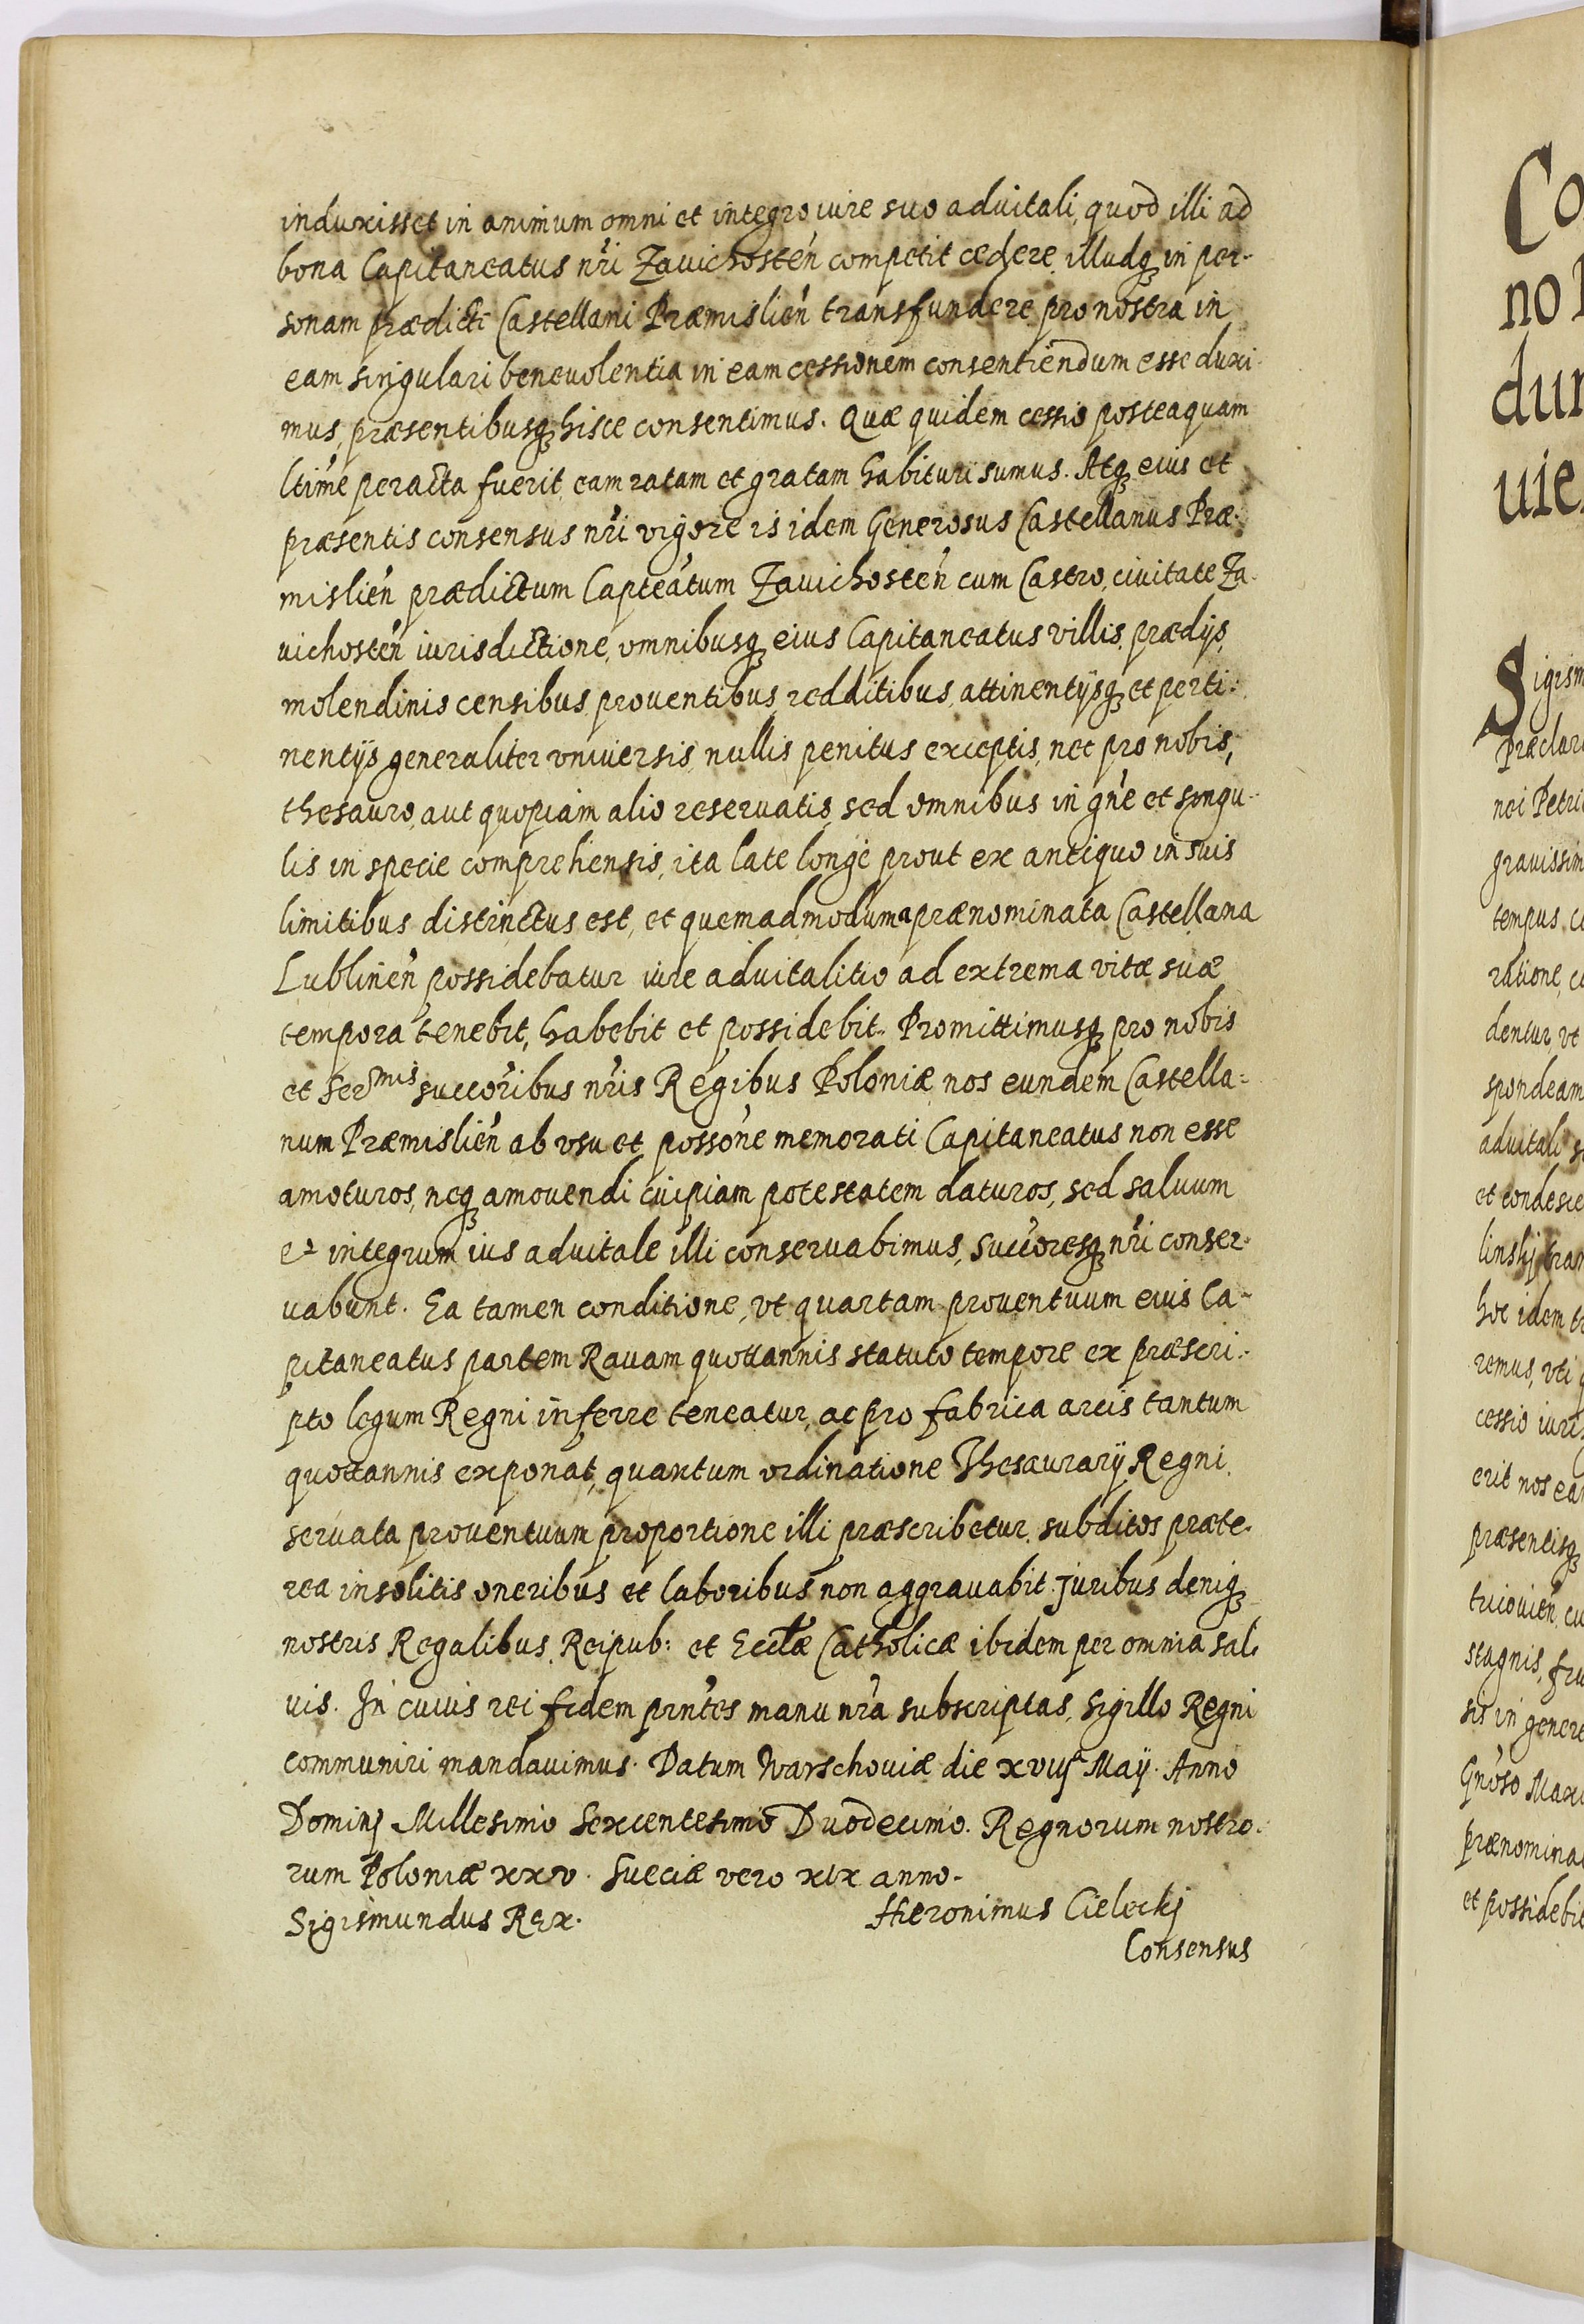 induxisset in animum omni et integro iure suo advitali, quod illi ad
bona Capitaneatus nri Zavichosten competit cedere, illudq in per-
sonam prædicti Castellani Præmislien transfundere pro nostra in
eam singulari benevolentia in eam cessionem consentiendum esse duxi-
mus, præsentibusq hisce consentimus. Quæ quidem cessio posteaquam
ltime peracta fuerit, eam ratam et gratam habituri sumus. Atq eius et
præsentis consensus nri vigore is idem Generosus Castellanus Præ-
mislien prædictum Capteatum Zavichosten cum Castro, civitate Za-
vichosten iurisdictione, omnibusq eius Capitaneatus villis, prædijs,
molendinis censibus proventibus, redditibus, attinentijsq et perti-
nentijs generaliter vniuersis, nullis penitus exceptis, nec pro nobis,
thesauro, aut quopiam alio reseruatis, sed omnibus in gne et singu-
lis in specie comprehensis, ita late longe prout ex antiquo in suis
limitibus distinctus est, et quemadmodum a prænominata Castellana
Lublinen possidebatur iure advitalitio ad extrema vitæ suæ
tempora tenebit, habebit et possidebit. Promittimusq pro nobis
et Sermis succoribus nris Regibus Poloniæ nos eundem Castella=
num Præmislien ab vsu et possone memorati Capitaneatus non esse
amoturos, neq amouendi cuipiam potestatem daturos, sed saluum
et integrum ius advitale illi conseruabimus, succoresq nri conser-
uabunt. Ea tamen conditione, vt quartam prouentuum eius Ca-
pitaneatus partem Rauam quottannis statuto tempore ex præscri-
pto legum Regni inferre teneatur, ac pro fabrica arcis tantum
quottannis exponat, quantum ordinatione Thesaurarij Regni
seruata prouentuum proportione illi præscribetur, subditos præte-
rea insolitis oneribus et laboribus non aggrauabit. Juribus deniq
nostris Regalibus, Reipub: et Ecclæ Catholicæ ibidem per omnia sal-
uis. In cuius rei fidem pntes manu nra subscriptas, Sigillo Regni
communiri mandauimus. Datum Warschouiæ die xviij Maij. Anno
Dominj Millesimo Sexcentesimo Duodecimo. Regnorum nostro-
rum Poloniæ xxv. Sueciæ vero xix anno.
Sigismundus Rex.
Hieronimus Cieleckj
Consensus
Co
no
dum
uie
Sigism
Præclar
nei Petri
grauissim
tempus
ratione, c
dentur, vt
spondeam
advitali s
et condesce
linskj tran
hoc idem t
remus, vti
cessio iuri
erit nos ea
præsentisq
triouien, cu
stagnis, fru
sis in genere
Gnoso Maxi
prænomina
et possidebit